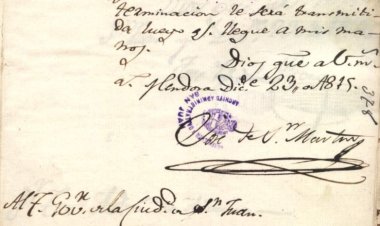 terminacion le será transmiti
da luego q.e llegue a mis ma
nos,
Dios gue a V. m
a.s Mendoza Dic.e 23, de 1815,
José de S.n Martin
Al T. Gov.r de la Ciud.d de S.n Juan.
SAN JUAN